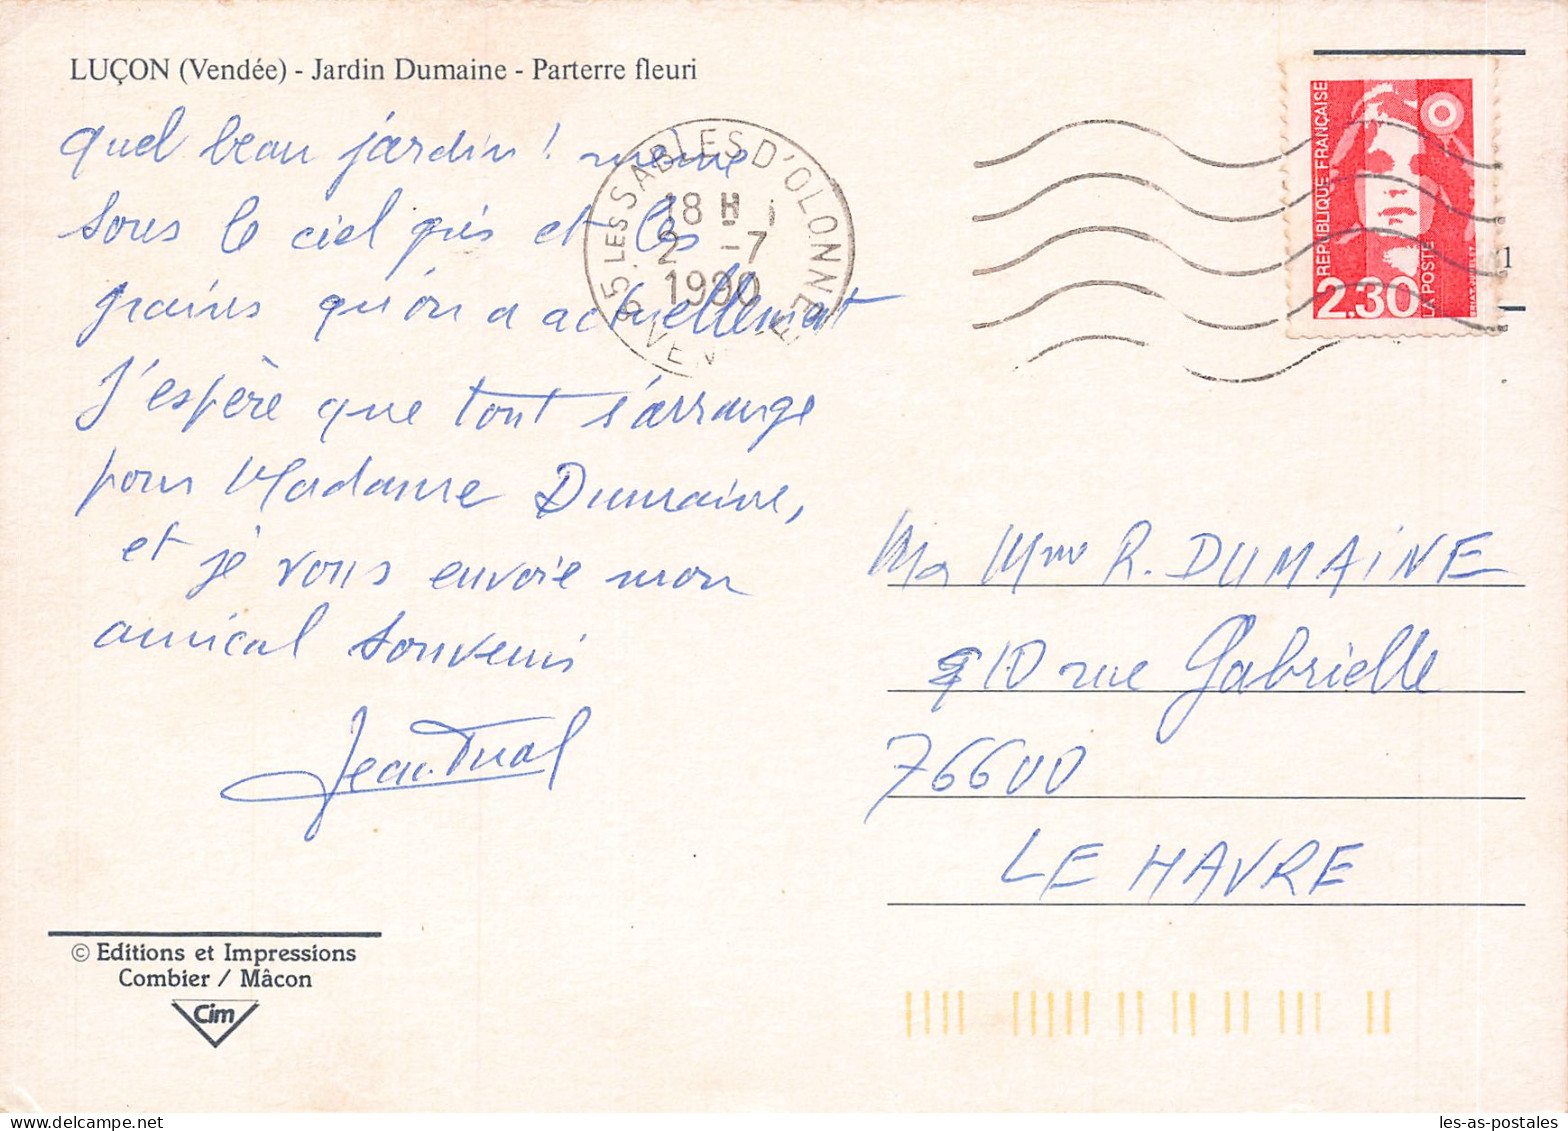 LUÇON (Vendée) - Jardin Dumaine - Parterre fleuri
quel beau jardin ! même
sous le ciel gris et les
grains qu'on a actuellement
J'espère que tout s'arrange
pour Madame Dumaine,
et je vous envoie mon
amical souvenir
Jean
© Editions et Impressions
Combier / Mâcon
Cim
85 LES SABLES D'OLONNE
18 H
2 -7
1990
VENDEE
REPUBLIQUE FRANÇAISE
LA POSTE
2.30
1
Mme R. DUMAINE
10 rue Gabrielle
76600
LE HAVRE
les-as-postales